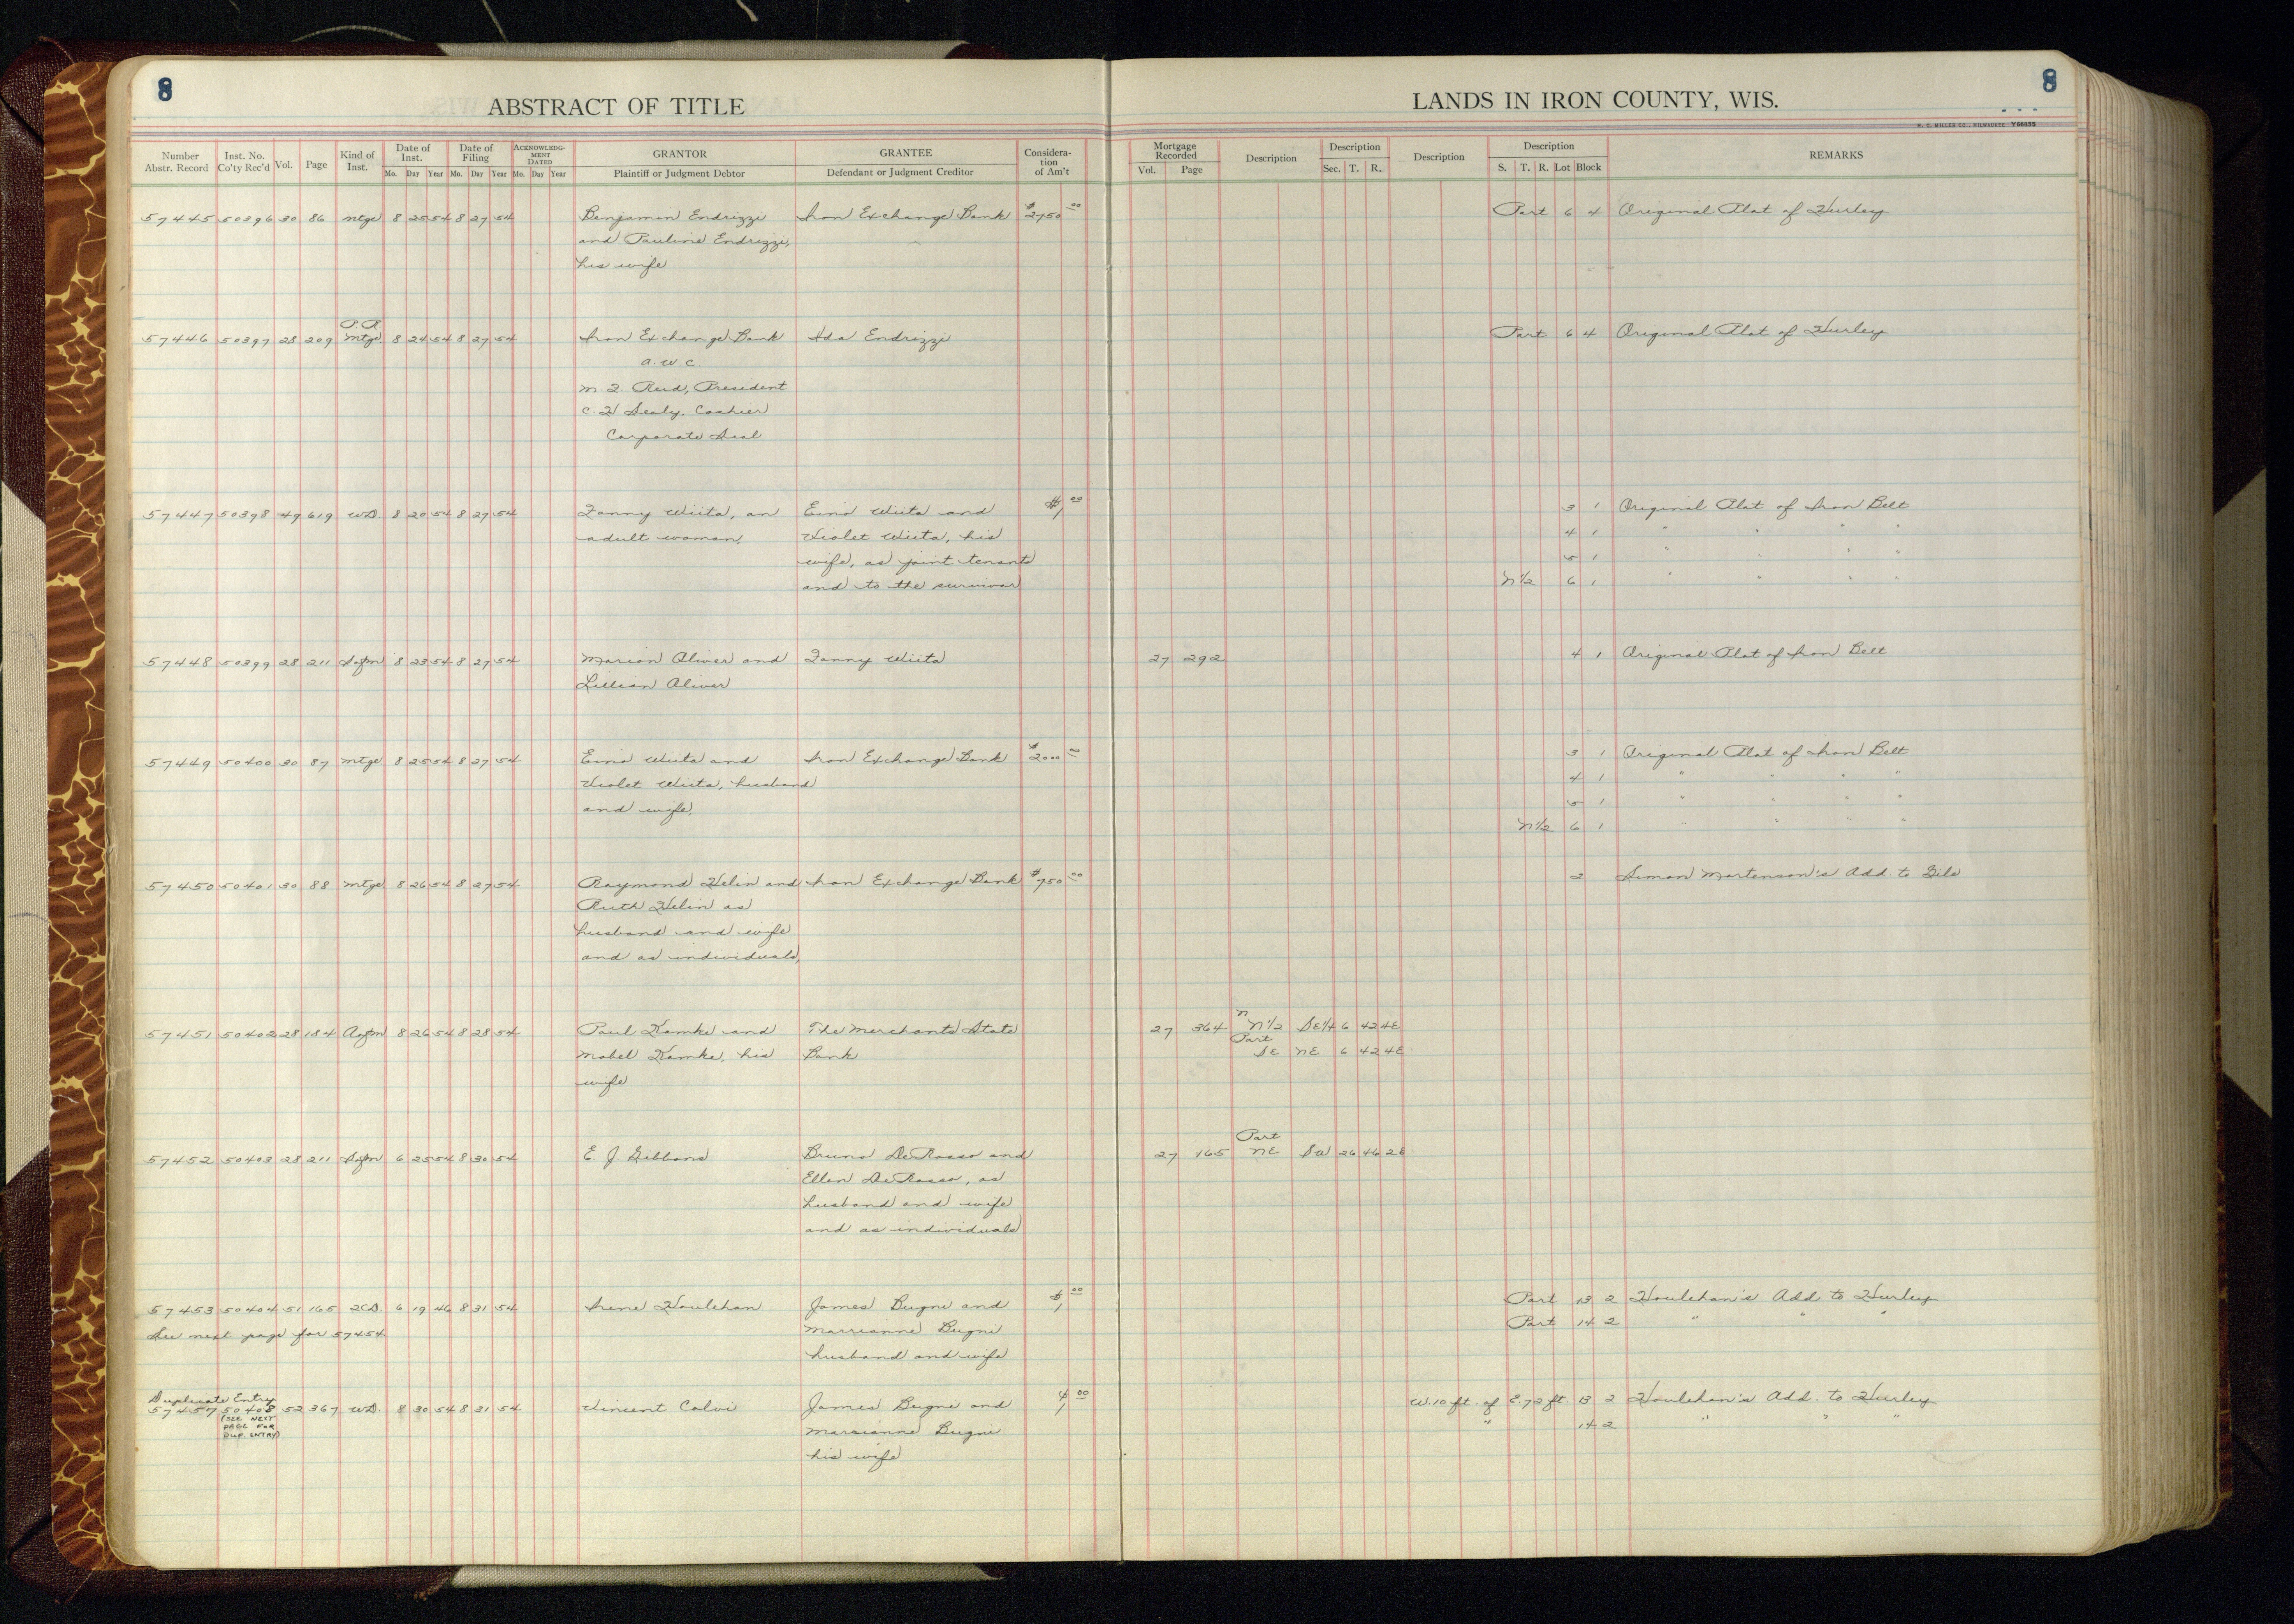 8
8
ABSTRACT OF TITLE
LANDS IN IRON COUNTY, WIS.
H. C. MILLER CO., MILWAUKEE Y56855
Number Abstr. Record | Inst. No. Co'ty Rec'd | Vol. | Page | Kind of Inst. | Date of Inst. Mo. Day Year | Date of Filing Mo. Day Year | ACKNOWLEDGMENT DATED Mo. Day Year | GRANTOR Plaintiff or Judgment Debtor | GRANTEE Defendant or Judgment Creditor | Consideration of Am't | Mortgage Recorded Vol. Page | Description | Description Sec. T. R. | Description | Description S. T. R. Lot Block | REMARKS
57445 50396 30 86 Mtge 8 25 54 8 27 54 Benjamin Endrizzi Iron Exchange Bank $2750 00 Part 6 4 Original Plat of Hurley
and Pauline Endrizzi,
his wife
P.R.
57446 50397 28 209 Mtge 8 24 54 8 27 54 Iron Exchange Bank Ida Endrizzi Part 6 4 Original Plat of Hurley
a.w.c.
M. H. Reid, President
C. H. Sealy, Cashier
Corporate Seal
57447 50398 49 619 WD. 8 20 54 8 27 54 Fanny Wiita, an Eino Wiita and $1 00 3 1 Original Plat of Iron Belt
adult woman, Violet Wiita, his 4 1 " " " "
wife, as joint tenants 5 1 " " " "
and to the survivor N 1/2 6 1 " " " "
57448 50399 28 211 Safm 8 23 54 8 27 54 Marion Oliver and Fanny Wiita 27 292 4 1 Original Plat of Iron Belt
Lillian Oliver
57449 50400 30 87 Mtge 8 25 54 8 27 54 Eino Wiita and Iron Exchange Bank $2000 00 3 1 Original Plat of Iron Belt
Violet Wiita, husband 4 1 " " " "
and wife, 5 1 " " " "
N 1/2 6 1 " " " "
57450 50401 30 88 Mtge 8 26 54 8 27 54 Raymond Helin and Iron Exchange Bank $750 00 2 Simon Martenson's Add. to Gile
Ruth Helin as
husband and wife
and as individuals,
57451 50402 28 184 Aofm 8 26 54 8 28 54 Paul Kamke and The Merchants State 27 364 N N 1/2 SE 1/4 6 42 4E
Mabel Kamke, his Bank Part SE NE 6 42 4E
wife
57452 50403 28 211 Sofm 6 25 54 8 30 54 E. J. Gibbons Bruno DeRosso and 27 165 Part NE SW 26 46 2E
Ellen DeRosso, as
husband and wife
and as individuals
57453 50404 51 165 2CD. 6 19 46 8 31 54 Irene Houlehan James Bugni and $1 00 Part 13 2 Houlehan's Add. to Hurley
See next page for 57454 Marrianne Bugni Part 14 2 " " "
husband and wife
Duplicate Entry
57457 50408 52 367 WD. 8 30 54 8 31 54 Vincent Calvi James Bugni and $1 00 W. 10 ft. of E. 72 ft. 13 2 Houlehan's Add. to Hurley
(SEE NEXT PAGE FOR DUP. ENTRY) Marrianne Bugni " 14 2 " " "
his wife